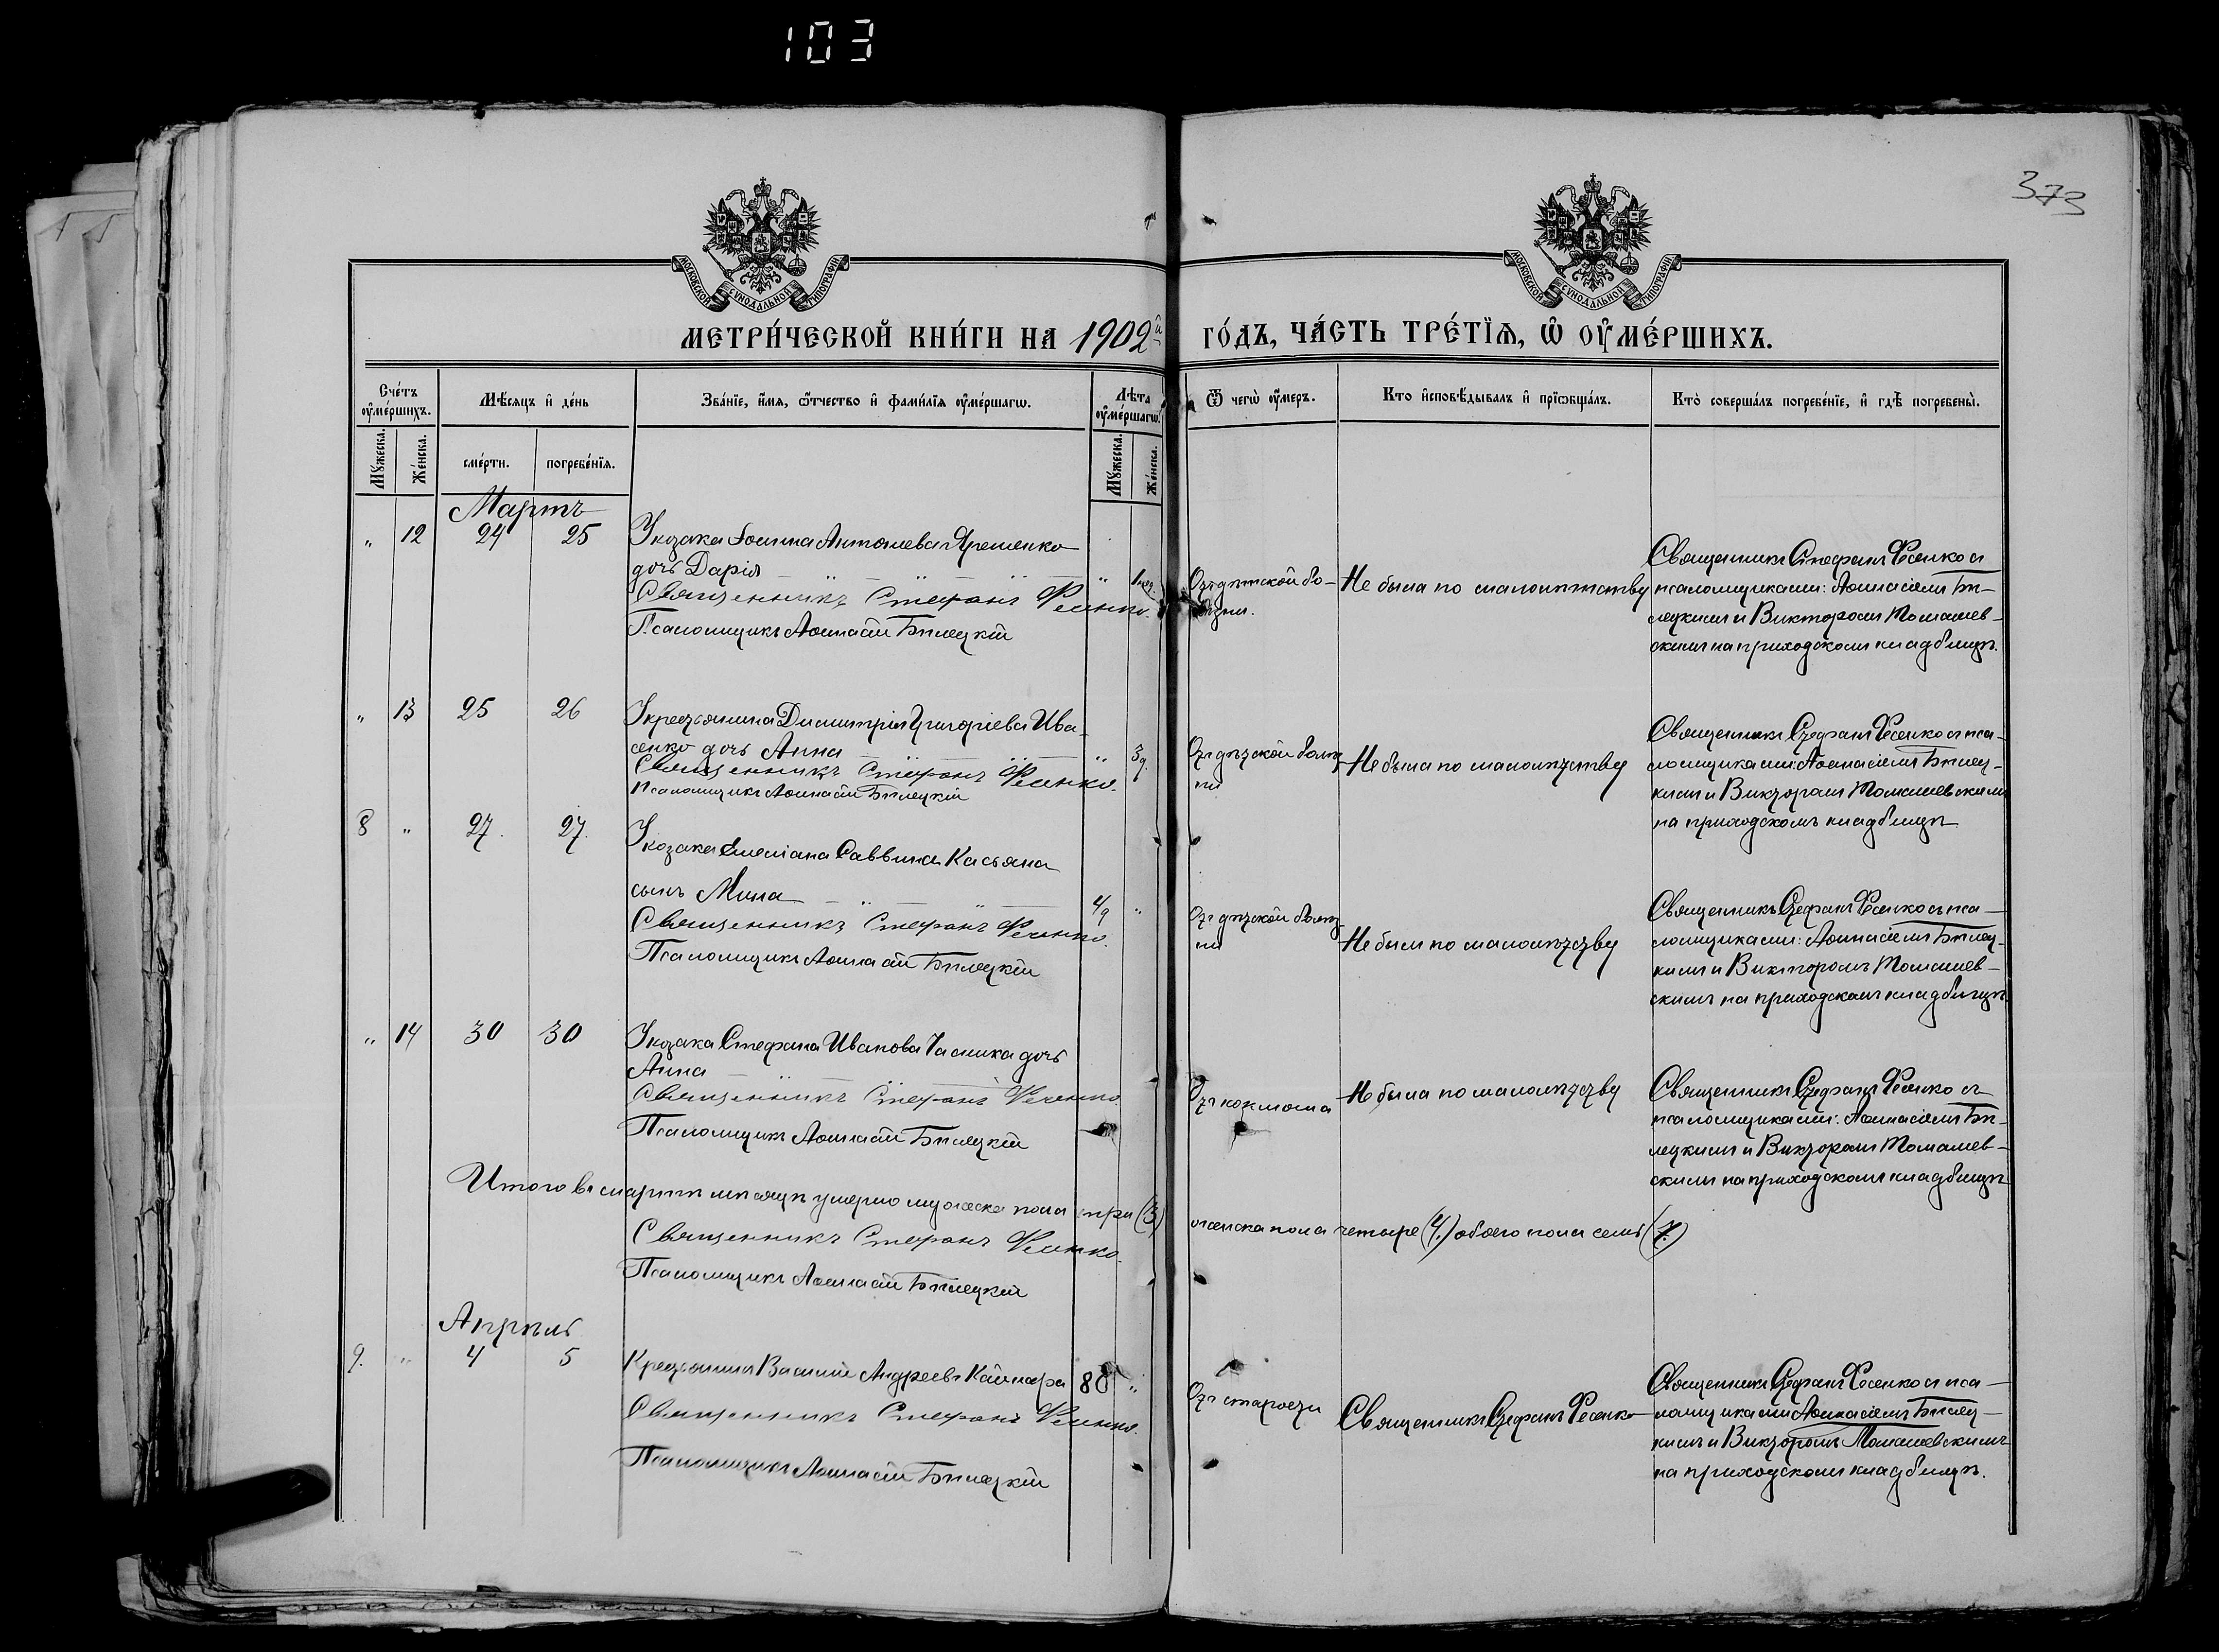 103
373
МОСКОВСКОЙ СѴНОДАЛЬНОЙ ТИПОГРАФІИ
МОСКОВСКОЙ СѴНОДАЛЬНОЙ ТИПОГРАФІИ
МЕТРИ́ЧЕСКОЙ КНИ́ГИ НА 1902й ГО́ДЪ, ЧА́СТЬ ТРЕ́ТІѦ, Ѡ ОУМЕ́РШИХЪ.
Сче́тъ оумéршихъ.
Мѣ́сяцъ и де́нь
Зва́нїе, и́мя, ѻ҆́тчество и фами́лїя оумéршагѡ.
Лѣ́та оумéршагѡ.
Ѿ чегѡ̀ оу́меръ.
Кто и҆сповѣ́дывалъ и прїѡбща́лъ.
Кто̀ соверша́лъ погребе́нїе, и гдѣ̀ погребены̀.
Мꙋ́жеска.
Же́нска.
сме́рти.
погребе́нїя.
Мꙋ́жеска.
Же́нска.
Мартъ
" 12 24 25
У козака Іоанна Антоніева Яременко
дочь Дарія " 1 мѣс.
Священникъ Стефанъ Фесенко.
Псаломщикъ Аѳанасій Бѣлецкій
Отъ дѣтской бо-
лѣзни.
Не была по малолѣтству
Священникъ Стефанъ Фесенко съ
псаломщиками: Аѳанасіемъ Бѣ-
лецкимъ и Викторомъ Томашев-
скимъ на приходскомъ кладбищѣ.
" 13 25 26
У крестьянина Димитрія Григоріева Ива-
сенко дочь Анна " 3 д.
Священникъ Стефанъ Фесенко.
Псаломщикъ Аѳанасій Бѣлецкій
Отъ дѣтской болѣз-
ни
Не была по малолѣтству
Священникъ Стефанъ Фесенко съ пса-
ломщиками: Аѳанасіемъ Бѣлец-
кимъ и Викторомъ Томашевскимъ
на приходскомъ кладбищѣ
8 " 27. 27.
У козака Емеліана Саввина Касьяна
сынъ Мина 4/д "
Священникъ Стефанъ Фесенко.
Псаломщикъ Аѳанасій Бѣлецкій
Отъ дѣтской болѣз-
ни
Не былъ по малолѣтству
Священникъ Стефанъ Фесенко съ пса-
ломщиками: Аѳанасіемъ Бѣлец-
кимъ и Викторомъ Томашев-
скимъ на приходскомъ кладбищѣ
" 14 30 30
У козака Стефана Иванова Часника дочь
Анна
Священникъ Стефанъ Фесенко.
Псаломщикъ Аѳанасій Бѣлецкій
Отъ коклюша
Не была по малолѣтству
Священникъ Стефанъ Фесенко съ
псаломщиками: Аѳанасіемъ Бѣ-
лецкимъ и Викторомъ Томашев-
скимъ на приходскомъ кладбищѣ
Итого въ мартѣ мѣсяцѣ умерло мужеска пола три (3) женска пола четыре (4.) обоего пола семь (7.)
Священникъ Стефанъ Фесенко.
Псаломщикъ Аѳанасій Бѣлецкій
Апрѣль
9. " 4 5
Крестьянинъ Василій Андреевъ 80 "
Священникъ Стефанъ Фесенко.
Псаломщикъ Аѳанасій Бѣлецкій
Отъ старости
Священникъ Стефанъ Фесенко
Священникъ Стефанъ Фесенко съ пса-
ломщиками Аѳанасіемъ Бѣлец-
кимъ и Викторомъ Томашевскимъ
на приходскомъ кладбищѣ.